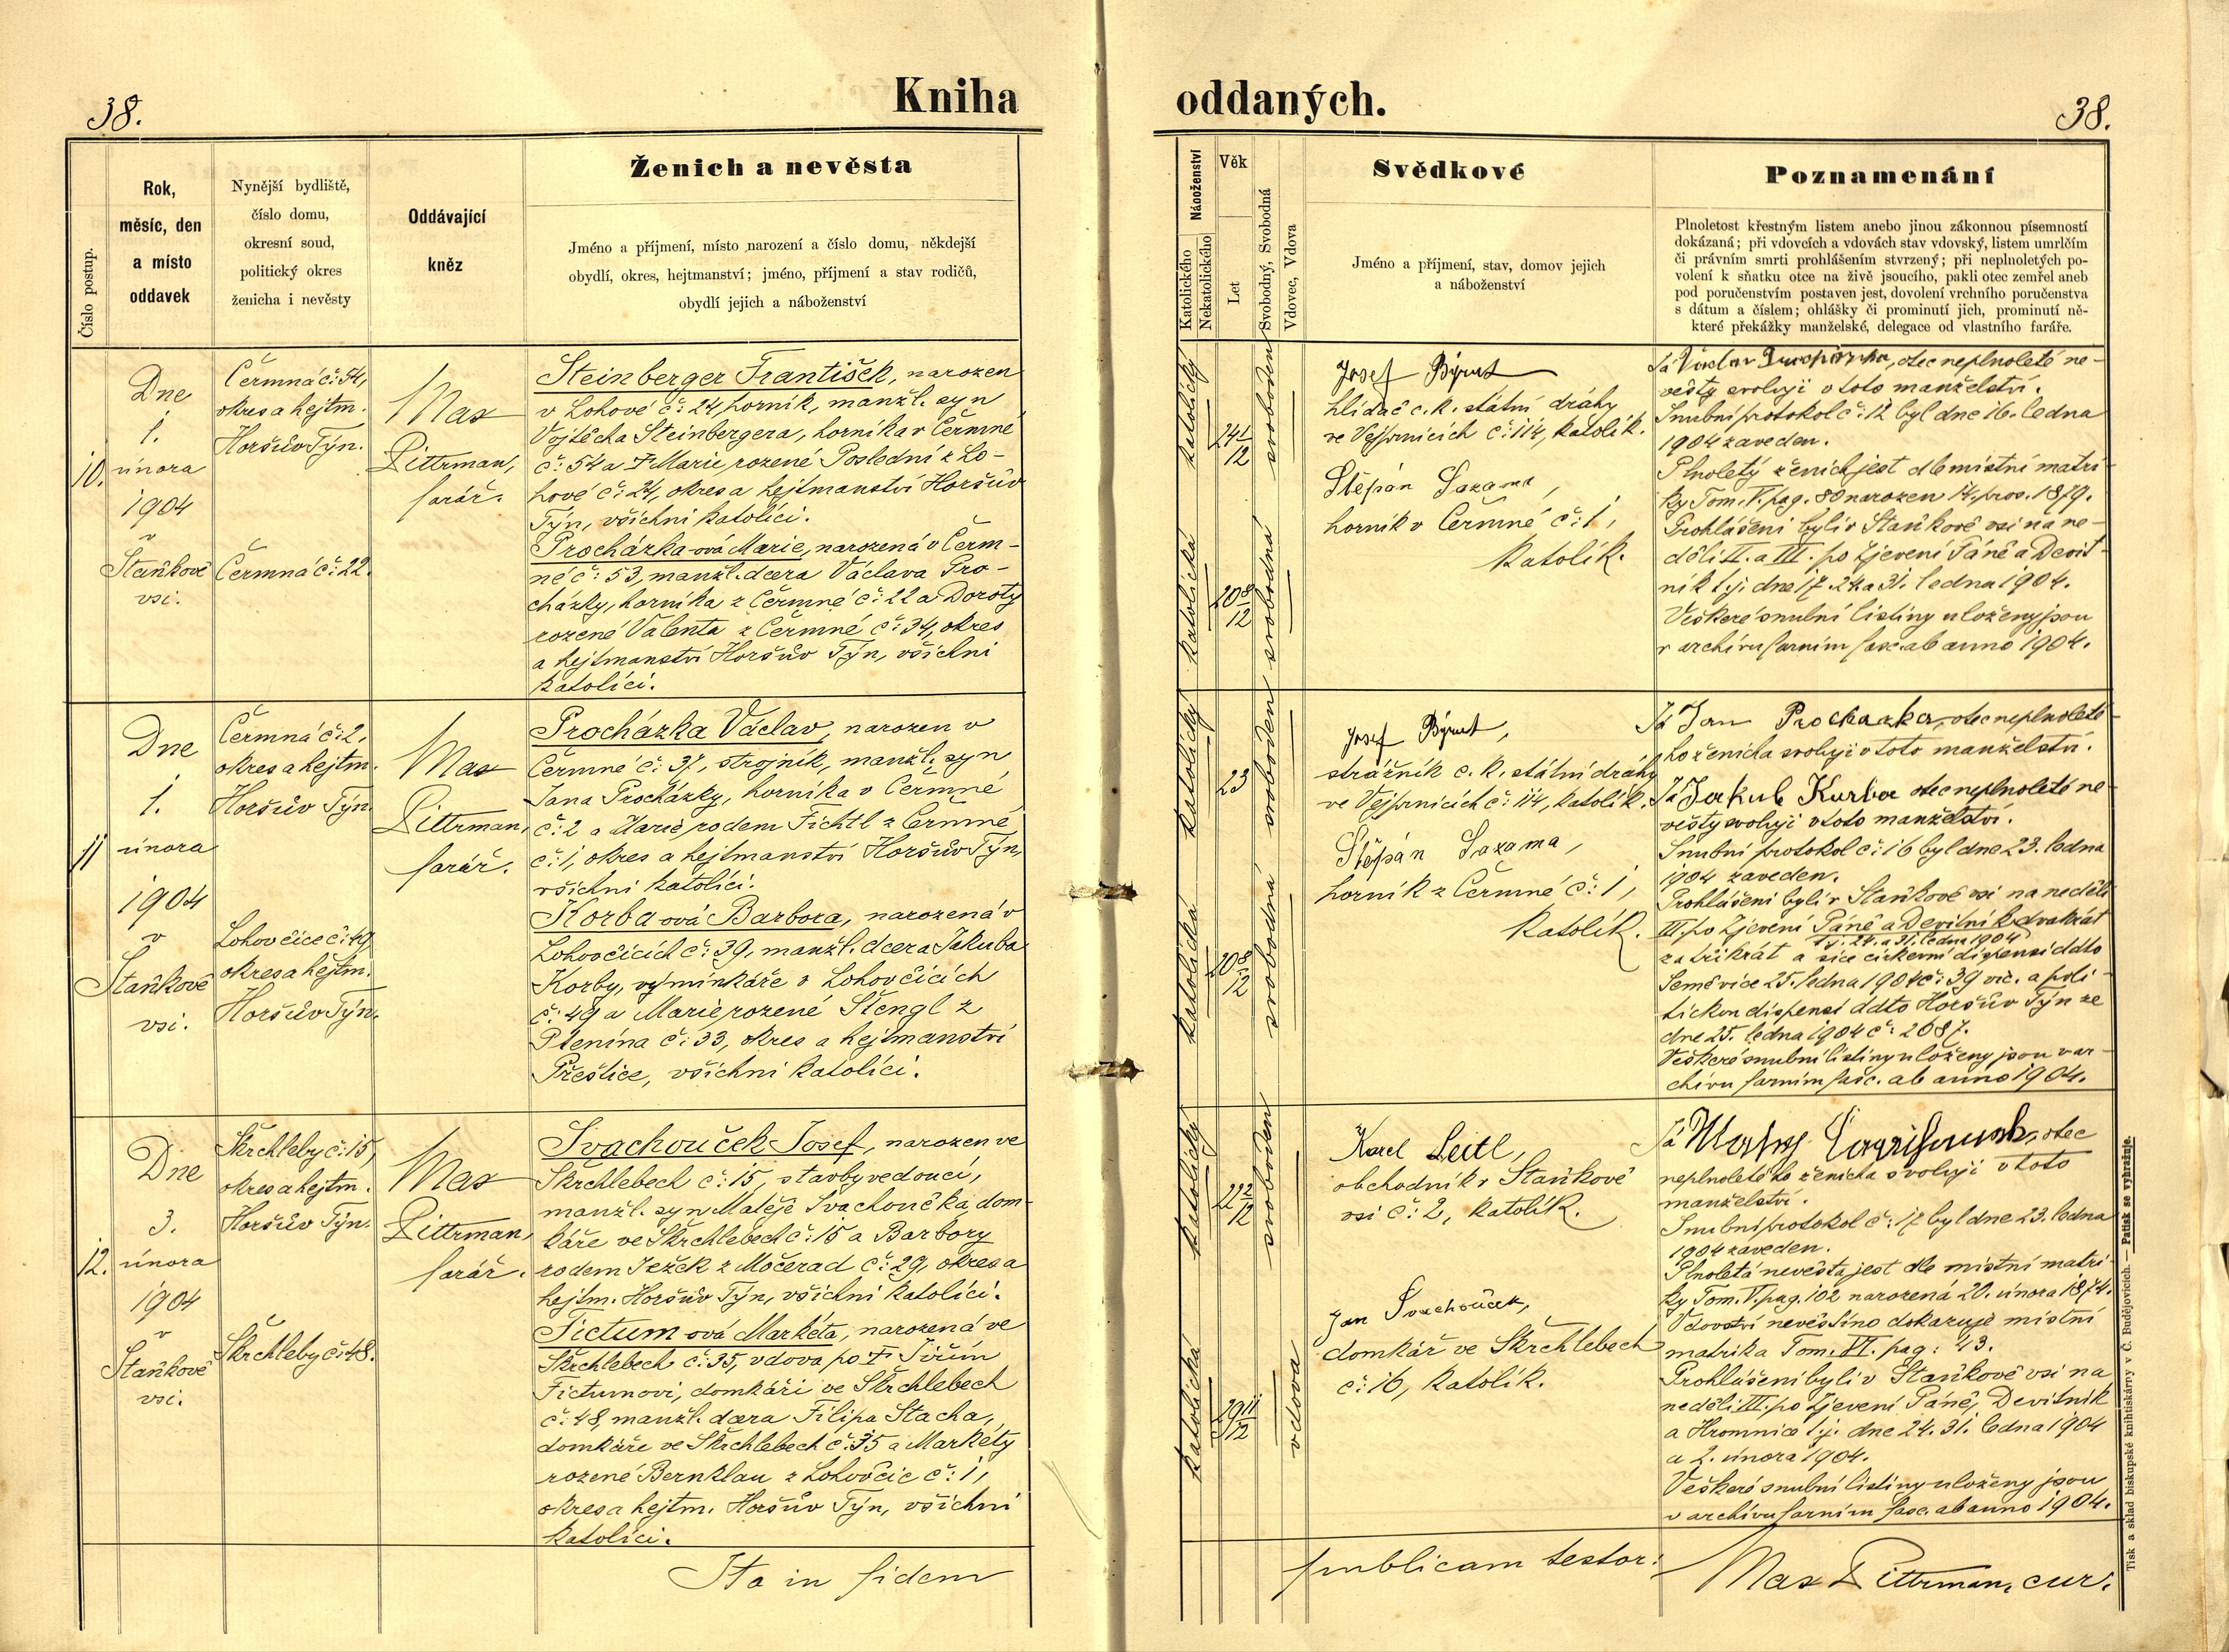 38.
Kniha
oddaných.
38.
Číslo postup.
Rok,
měsíc, den
a místo
oddavek
Nynější bydliště,
číslo domu,
okresní soud,
politický okres
ženicha i nevěsty
Oddávající
kněz
Ženich a nevěsta
Jméno a příjmení, místo narození a číslo domu, někdejší
obydlí, okres, hejtmanství; jméno, příjmení a stav rodičů,
obydlí jejich a náboženství
Náboženství
Katolického
Nekatolického
Věk
Let
Svobodný, Svobodná
Vdovec, Vdova
Svědkové
Jméno a příjmení, stav, domov jejich
a náboženství
Poznamenání
Plnoletost křestným listem anebo jinou zákonnou písemností
dokázaná; při vdovcích a vdovách stav vdovský, listem umrlčím
či právním smrti prohlášením stvrzený; při neplnoletých po-
volení k sňatku otce na živě jsoucího, pakli otec zemřel aneb
pod poručenstvím postaven jest, dovolení vrchního poručenstva
s dátum a číslem; ohlášky či prominutí jich, prominutí ně-
které překážky manželské, delegace od vlastního faráře.
10.
Dne
1.
února
1904
v
Staňkově
vsi.
Čermná č: 54,
okres a hejtm.
Horšův Týn.
Čermná č: 22.
Max
Pittrman,
farář.
Steinberger František, narozen
v Lohově č: 24, horník, manžl. syn
Vojtěcha Steinbergera, horníka v Čermné
č: 54 a † Marie, rozené Poslední z Lo-
hové č: 24, okres a hejtmanství Horšův
Týn, všichni katolíci.
Procházka-ová Marie, narozená v Čerm-
né č: 53, manžl. dcera Václava Pro-
cházky, horníka z Čermné č: 22 a Doroty
rozené Valenta z Čermné č: 34, okres
a hejtmanství Horšův Týn, všichni
katolíci.
katolický
24 1/12
svoboden
katolická
20 8/12
svobodná
Josef Býrut
hlídač c. k. státní dráhy
ve Vejprnicích č: 114, katolík.
Štěpán Sazama,
horník v Čermné č: 1,
katolík.
Já Václav, otec neplnoleté ne-
věsty svoluji v toto manželství.
Snubní protokol č: 12 byl dne 16. ledna
1904 zaveden.
Plnoletý ženich jest dle místní matri-
ky Tom. V. pag. 80 narozen 14. pros. 1879.
Prohlášeni byli v Staňkově vsi na ne-
děli II. a III. po Zjevení Páně a Devít-
ník t. j. dne 17. 24. a 31. ledna 1904.
Veškeré snubní listiny uloženy jsou
v archivu farním fasc. ab anno 1904.
11
Dne
1.
února
1904
v
Staňkově
vsi.
Čermná č: 2,
okres a hejtm.
Horšův Týn.
Lohovčice č: 49
okres a hejtm.
Horšův Týn.
Max
Pittrman,
farář.
Procházka Václav, narozen v
Čermné č: 37, strojník, manžl. syn
Jana Procházky, horníka v Čermné
č: 2 a Marie, rodem Fichtl z Čermné
č: 1, okres a hejtmanství Horšův Týn,
všichni katolíci.
Korba-ová Barbora, narozená v
Lohovčicích č: 39, manžl. dcera Jakuba
Korby, výminkáře v Lohovčicích
č: 49 a Marie rozené Štengl z
Ptenína č: 33, okres a hejtmanství
Přeštice, všichni katolíci.
katolický
23
svoboden
katolická
20 8/12
svobodná
Josef Býrut,
strážník c. k. státní dráhy
ve Vejprnicích č: 114, katolík.
Štěpán Sazama,
horník z Čermné č: 1,
katolík.
Já Jan Prochazka, otec neplnoleté-
ho ženicha svoluji v toto manželství.
Já Jakub Kurba otec neplnoleté ne-
věsty svoluji v toto manželství.
Snubní protokol č: 16 byl dne 23. ledna
1904 zaveden.
Prohlášeni byli v Staňkově vsi na neděli
III. po Zjevení Páně a Devítník dvakrát
t. j. 24. a 31. ledna 1904
za třikrát a sice církevní dispensí ddto
Semšvice 25. ledna 1904 č: 39 vic. a poli-
tickou dispensí ddto Horšův Týn ze
dne 25. ledna 1904 č: 2687.
Veškeré snubní listiny uloženy jsou v ar-
chivu farním fasc. ab anno 1904.
12.
Dne
3.
února
1904
v
Staňkově
vsi.
Škrchleby č: 15,
okres a hejtm.
Horšův Týn.
Škrchleby č: 48.
Max
Pittrman,
farář.
Svachouček Josef, narozen ve
Škrchlebech č: 15, stavbyvedoucí,
manžl. syn Matěje Svachoučka, dom-
káře ve Škrchlebech č: 15 a Barbory
rodem Ježek z Močerad č: 29, okres a
hejtm. Horšův Týn, všichni katolíci.
Tictum-ová Markéta, narozená ve
Škrchlebech č: 35, vdova po † Jiřím
Tictumovi, domkáři ve Škrchlebech
č: 48, manžl. dcera Filipa Stacha,
domkáře ve Škrchlebech č: 35 a Markéty
rozené Bernklau z Lohovčic č: 1,
okres a hejtm. Horšův Týn, všichni
katolíci.
katolický
22 2/12
svoboden
katolická
29 11/12
vdova
Karel Leitl,
obchodník v Staňkově
vsi č: 2, katolík.
Jan Svachouček,
domkář ve Škrchlebech
č: 16, katolík.
Já Matěj, otec
neplnoletého ženicha svoluji v toto
manželství.
Snubní protokol č: 17 byl dne 23. ledna
1904 zaveden.
Plnoletá nevěsta jest dle místní matri-
ky Tom. V. pag. 102 narozená 20. února 1874.
Vdovství nevěstino dokazuje místní
matrika Tom. VI. pag: 43.
Prohlášeni byli v Staňkově vsi na
neděli III. po Zjevení Páně, Devítník
a Hromnice t. j. dne 24. 31. ledna 1904
a 2. února 1904.
Veškeré snubní listiny uloženy jsou
v archivu farním fasc. ab anno 1904.
Ita in fidem
publicam testor:
Max Pittrman, cur.
Tisk a sklad biskupské knihtiskárny v Č. Budějovicích. — Patisk se vyhražuje.